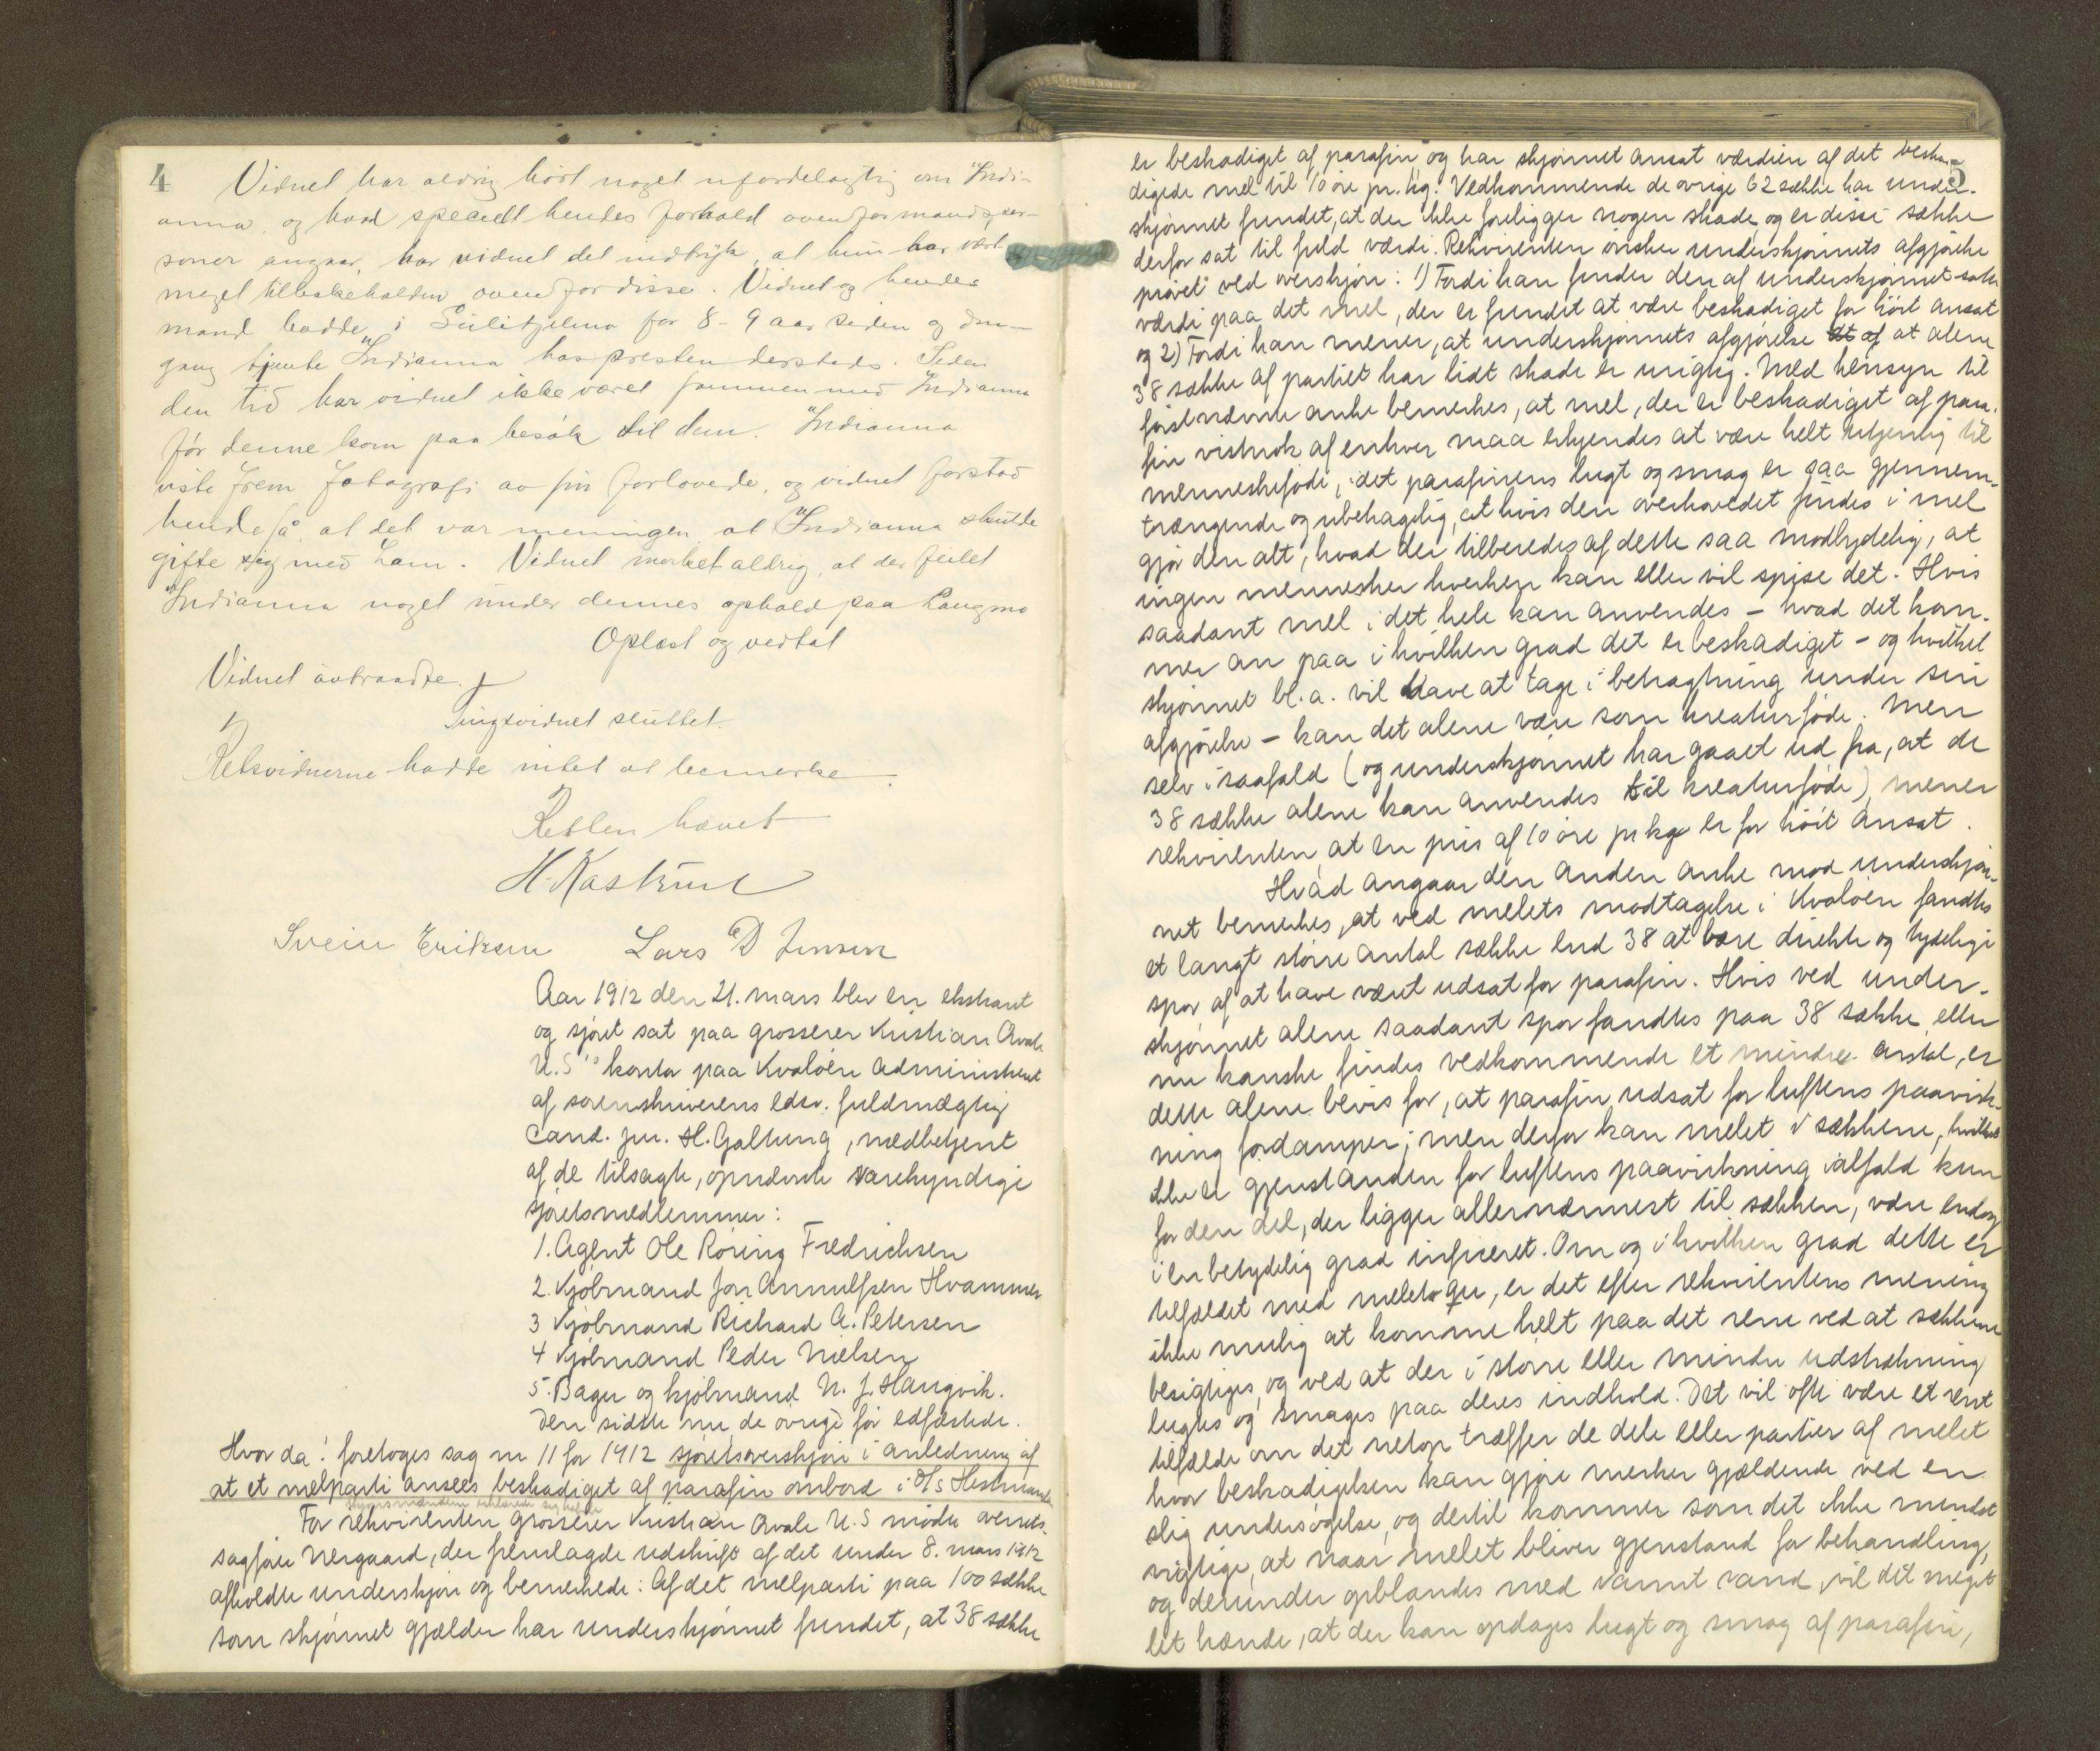 4
Vidnet har aldrig hört noget ufordelagtig om Indi-
anna, og hvad specielt hendes forhold ovenfor mandsper-
soner angaar, har vidnet det indtryk, at hun har vært
meget tilbakeholden ovenfor disse. Vidnet og hendes
mand bodde i Sulitjelma for 8-9 aar siden og den-
gang tjente Indianna hos presten dersteds. Siden
den tid har vidnet ikke været sammen med Indianna
før denne kom paa besøk til dem. Indianna
viste frem fotografi av sin forlovede, og vidnet forstod
hende så, at det var meningen at Indianna skulde
gifte sig med ham. Vidnet merket aldrig, at der feilet
Indianna noget under dennes ophold paa Langmo
Oplæst og vedtat
Vidnet avtraadte.
Tingsvidnet sluttet.
Retsvidnerne hadde intet at bemerke.
Retten hævet
H. Kastrud
Svein Eriksen Lars D Jensen
Aar 1912 den 21. mars blev en ekstraret
og sjøret sat paa grosserer Kristian Avale
U.S's kontor paa Kvaløen administrert
af sorenskriverens edsv. fuldmægtig
Cand. jur. H. Galtung, medbetjent
af de tilsagte, opnævnte varekyndige
sjøretsmedlemmer:
1. Agent Ole Röring Fredrichsen
2. Kjøbmand Jon Arnulfsen Hvammen
3 Kjøbmand Richard A. Petersen
4 Kjøbmand Peder Nielsen
5. Bager og kjøbmand N. J. Haugvik.
Den sidste nu, de øvrige før edfæstede.
Hvor da: foretoges sag nr 11 for 1912 sjøretsoverskjøn i anledning af
at et melparti ansees beskadiget af parafin ombord i D/s Hestmanden
For rekvirenten grosserer Kristian Avale U.S mødte overrets-
sagfører Nergaard, der fremlagde udskrift af det under 8. mars 1912
afholdte underskjøn og bemerkede: Af det melparti paa 100 sække
som skjønnet gjælder har underskjønnet fundet, at 38 sække
5
er beskadiget af parafin og har skjønnet ansat værdien af det beska-
digede mel til 10 øre pr. kg. Vedkommende de øvrige 62 sække har under-
skjønnet fundet, at der ikke foreligger nogen skade og er disse sække
derfor sat til fuld værdi. Rekvirenten ønsker underskjønnets afgjørelse
prøvet ved overskjøn: 1) Fordi han finder den af underskjønnet satte
værdi paa det mel, der er fundet at være beskadiget for høit ansat
og 2) Fordi han mener, at underskjønnets afgjørelse at af at alene
38 sække af partiet har lidt skade er urigtig. Med hensyn til
førstnævnte anke bemerkes, at mel, der er beskadiget af para-
fin vistnok af enhver maa erkjendes at være helt utjenlig til
menneskeføde, idet parafinens lugt og smag er saa gjennem-
trængende og ubehagelig, at hvis den overhovedet findes i mel
gjør den alt, hvad der tilberedes af dette saa modbydelig, at
ingen mennesker hverken kan eller vil spise det. Hvis
saadant mel i det hele kan anvendes – hvad det kom-
mer an paa i hvilken grad det er beskadiget – og hvilket
skjønnet bl.a. vil have at tage i betragtning under sin
afgjørelse – kan det alene være som kreaturføde. Men
selv i saafald (og underskjønnet har gaaet ud fra, at de
38 sække alene kan anvendes til kreaturføde) mener
rekvirenten, at en pris af 10 øre pr kg er for høit ansat.
Hvad angaar den anden anke mod underskjøn-
net bemerkes, at ved melets modtagelse i Kvaløen fandtes
et langt større antal sække end 38 at bære direkte og tydelige
spor af at have været udsat for parafin. Hvis ved under-
skjønnet alene saadant spor fandtes paa 38 sække, eller
nu kanske findes vedkommende et mindre antal, er
dette alene bevis for, at parafin udsat for luftens paavirk-
ning fordamper; men derfor kan melet i sækkene, hvilket
ikke er gjenstanden for luftens paavirkning ialfald kun
for den del, der ligger allernærmest til sækken, være endog
i en betydelig grad inficeret. Om og i hvilken grad dette er
tilfældet med melet, er det efter rekvirentens mening
ikke mulig at komme helt paa det rene ved at sækkene
besigtiges, og ved at der i større eller mindre udstrækning
lugtes og smages paa deres indhold. Det vil ofte være et rent
tilfælde om det netop træffer de dele eller partier af melet
hvor beskadigelsen kan gjøre merker gjældende ved en
slig undersøgelse, og dertil kommer som det ikke mindst
vigtige, at naar melet bliver gjenstand for behandling,
og derunder opblandes med varmt vand, vil det meget
let hænde, at der kan opdages lugt og smag af parafin,